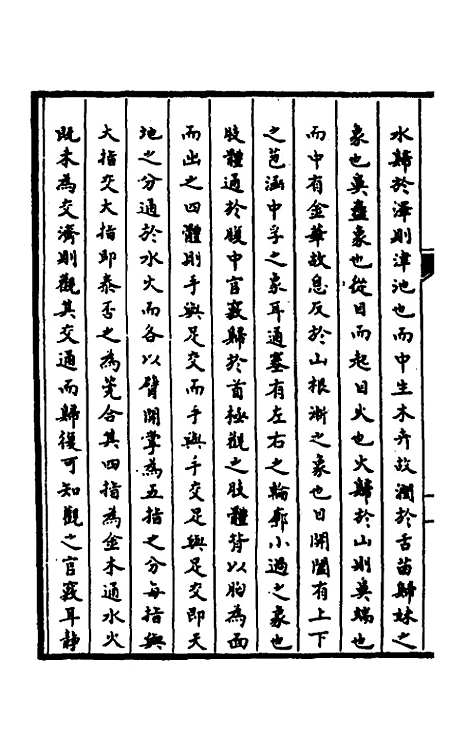 水歸於澤則津池也而中生木卉故潤於舌苗歸妹之
象也臭蠱象也從目而起目火也火歸於山則鼻端也
而中有金華故息反於山根漸之象也目開闔有上下
之苞涵中孚之象耳通塞有左右之輪廓小過之象也
肢體通於腹中官竅歸於首極觀之肢體背以胸為面
而出之四體則手與足交而手與手交足與足交即天
地之分通於水火而各以臂開掌為五指之分每指與
大指交大指即泰否之為筦合其四指為金木通水火
既未為交濟則觀其交通而歸復可知觀之官竅耳靜